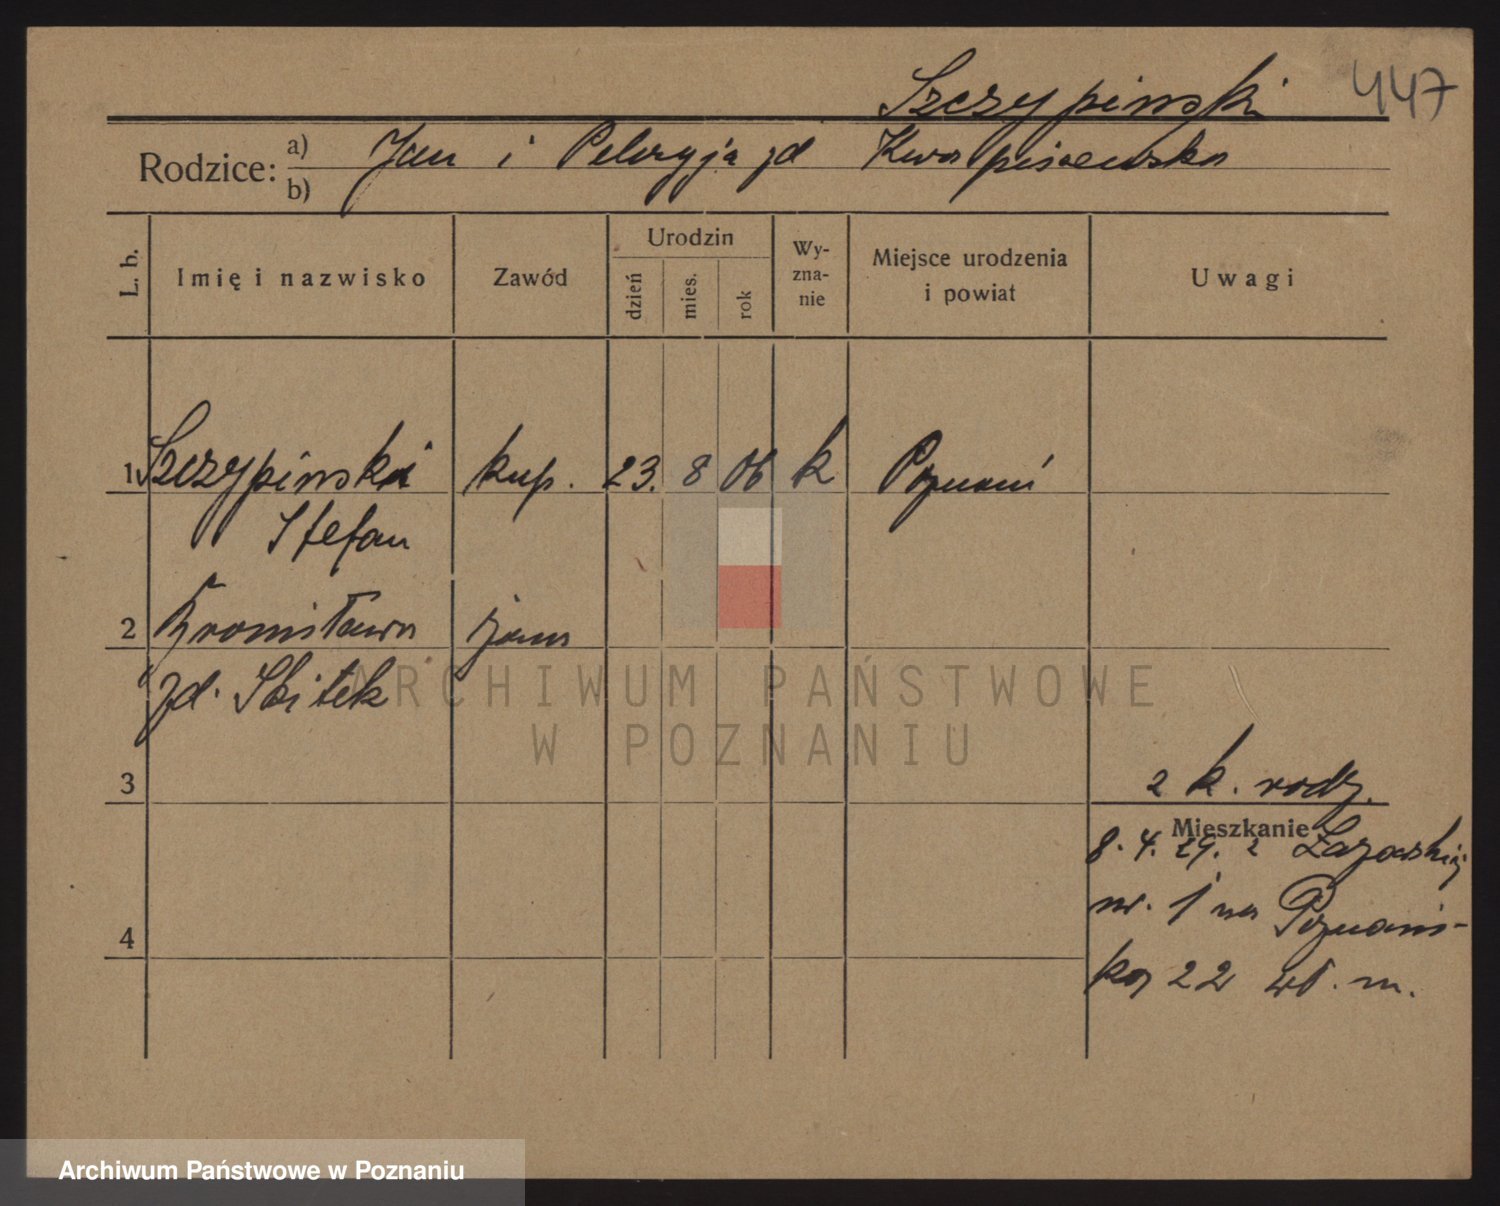 Szczypinski 447
Rodzice: a) b) Jan i Pelagja zd
L. b. Imię i nazwisko Zawód Urodzin dzień mies. rok Wy-zna-nie Miejsce urodzenia i powiat Uwagi
1 Szczypinski kup. 23. 8 06 k Poznań
Stefan
2 Bronisława żona
zd.
3
2 k. rodz.
Mieszkanie
8. 4. 29. z Łazarskiej
nr. 1 na Poznańs-
ką 22 wł. m.
4
ARCHIWUM PAŃSTWOWE
W POZNANIU
Archiwum Państwowe w Poznaniu